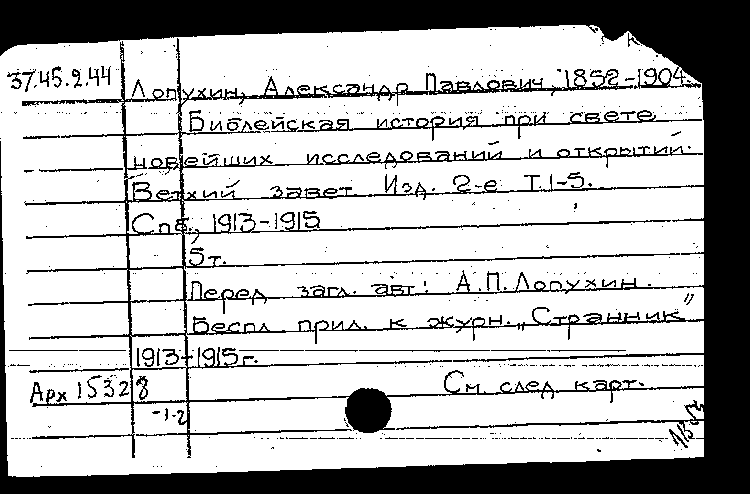 37.45.2.44 Лопухин, Александр Павлович, 1852-1904.
Библейская история при свете
новейших исследований и открытий.
Ветхий завет. Изд. 2-е Т.1-5.
Спб., 1913-1915
5т.
Перед загл. авт: А.П. Лопухин.
Беспл. прил. к журн. „Странник"
1913-1915г.
Арх 15328 См. след. карт.
-1-2